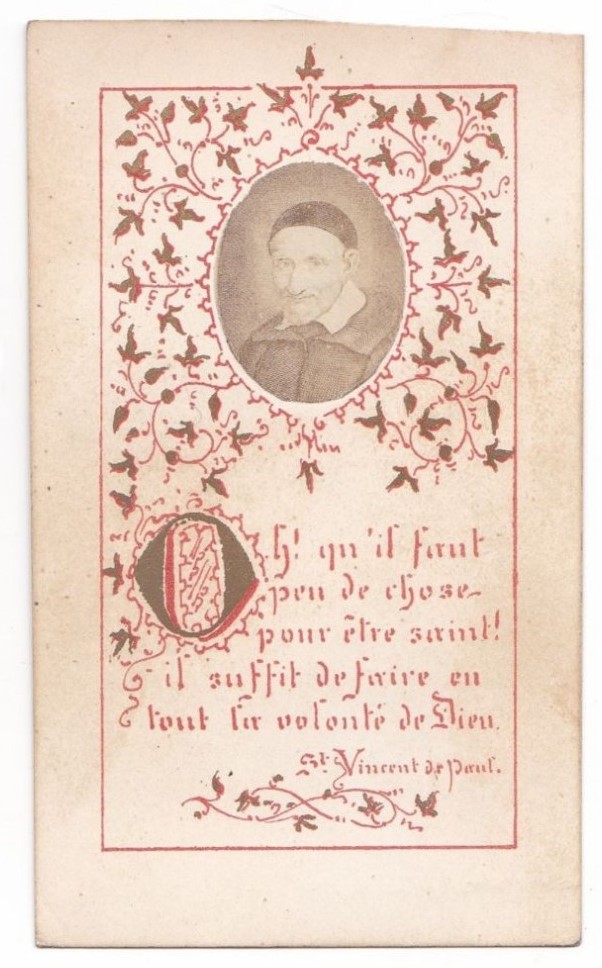 Oh! qu'il faut
peu de chose
pour être saint!
il suffit de faire en
tout la volonté de Dieu.
St. Vincent de Paul.